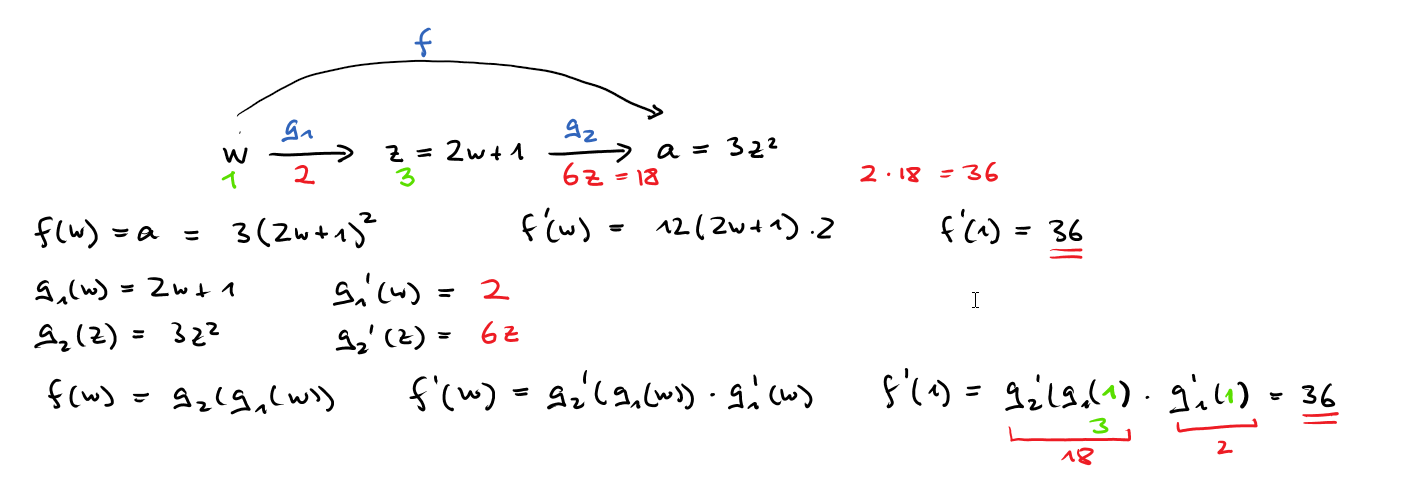 f
g₁ g₂
w → z = 2w+1 → a = 3z²
1 2 3 6z = 18 2 · 18 = 36
f(w) = a = 3(2w+1)² f'(w) = 12(2w+1) . 2 f'(1) = 36
g₁(w) = 2w + 1 g₁'(w) = 2
g₂(z) = 3z² g₂'(z) = 6z
f(w) = g₂(g₁(w)) f'(w) = g₂'(g₁(w)) · g₁'(w) f'(1) = g₂'(g₁(1) · g₁'(1) = 36
3
18 2